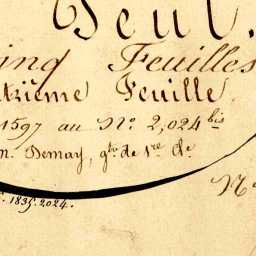 Seul.
inq Feuilles
trième Feuille
1597 au No. 2,024 bis
n. Demay, gto. de 1re cle.
N
1835. 2024.